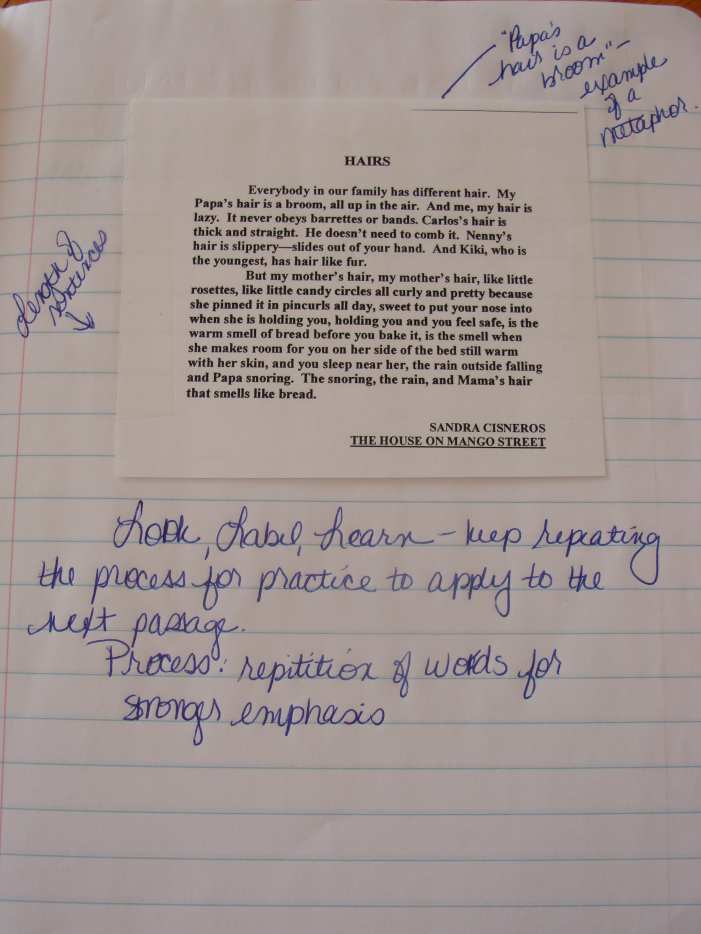 "Papa's
hair is a
broom" –
example
of a
metaphor.
HAIRS
Everybody in our family has different hair. My
Papa's hair is a broom, all up in the air. And me, my hair is
lazy. It never obeys barrettes or bands. Carlos's hair is
thick and straight. He doesn't need to comb it. Nenny's
hair is slippery—slides out of your hand. And Kiki, who is
the youngest, has hair like fur.
But my mother's hair, my mother's hair, like little
rosettes, like little candy circles all curly and pretty because
she pinned it in pincurls all day, sweet to put your nose into
when she is holding you, holding you and you feel safe, is the
warm smell of bread before you bake it, is the smell when
she makes room for you on her side of the bed still warm
with her skin, and you sleep near her, the rain outside falling
and Papa snoring. The snoring, the rain, and Mama's hair
that smells like bread.
SANDRA CISNEROS
THE HOUSE ON MANGO STREET
Length of
sentences
Look, Label, Learn – keep repeating
the process for practice to apply to the
next passage.
Process: repitition of words for
stronger emphasis